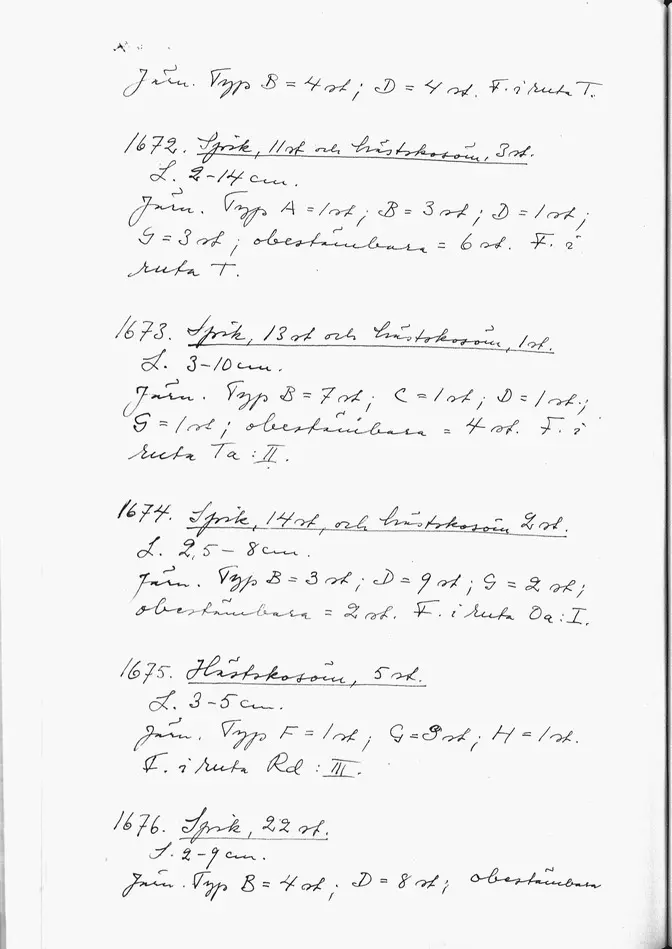 Järn. Typ B = 4 st; D = 4 st. F. i ruta T.
1672. Spik, 11 st och hästskosöm, 3 st.
L. 2-14 cm.
Järn. Typ A = 1 st; B = 3 st; D = 1 st;
G = 3 st; obestämbara = 6 st. F. i
ruta T.
1673. Spik, 13 st och hästskosöm, 1 st.
L. 3-10 cm.
Järn. Typ B = 7 st; C = 1 st; D = 1 st;
G = 1 st; obestämbara = 4 st. F. i
ruta Ta : II.
1674. Spik, 14 st, och hästskosöm 2 st.
L. 2,5 - 8 cm.
Järn. Typ B = 3 st; D = 9 st; G = 2 st;
obestämbara = 2 st. F. i ruta Oa : I.
1675. Hästskosöm, 5 st.
L. 3-5 cm.
Järn. Typ F = 1 st; G = 3 st; H = 1 st.
F. i ruta Rd : III.
1676. Spik, 22 st.
L. 2-9 cm.
Järn. Typ B = 4 st; D = 8 st; obestämbara